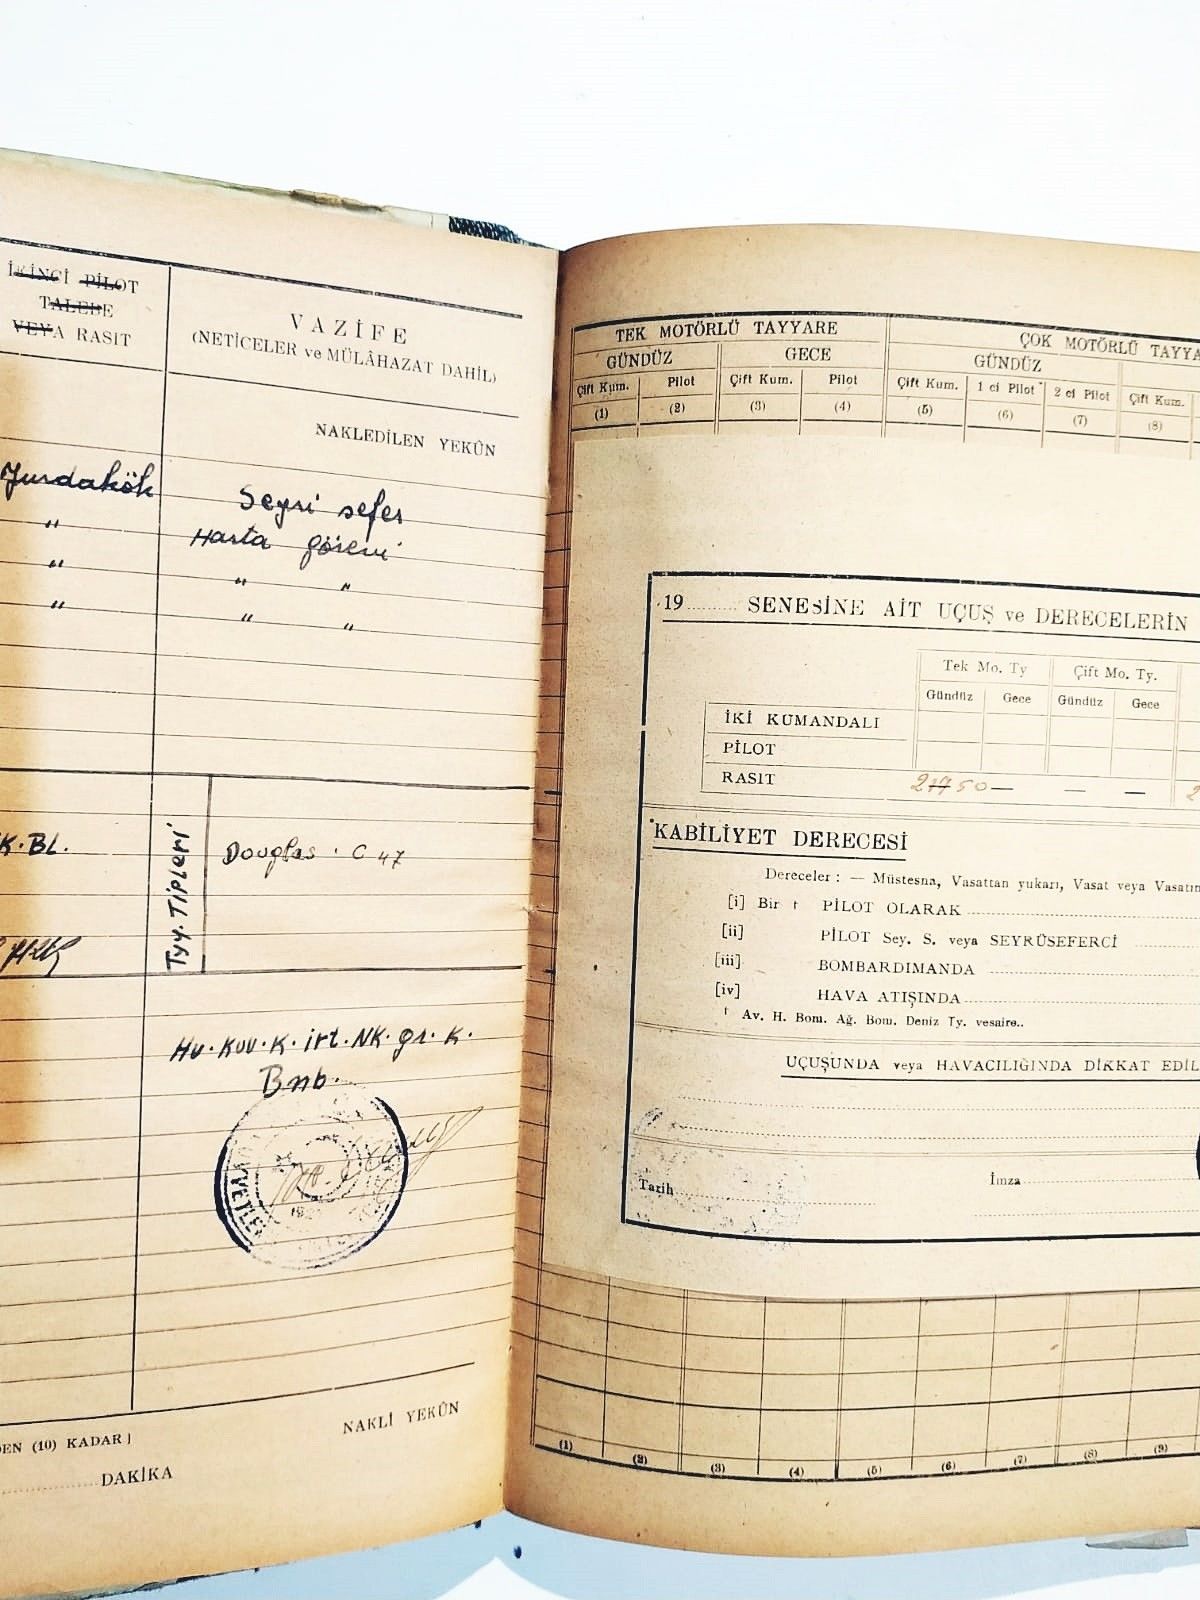 İKİNCİ PİLOT
TALEBE
VEYA RASIT
VAZİFE
(NETİCELER ve MÜLÂHAZAT DAHİL)
NAKLEDİLEN YEKÛN
Yurdakök Seyri sefer
" Harta görevi
" " "
" " "
K. BL.
Tyy. Tipleri
Douglas . C 47
Hv. Kuv. K. irt. NK. gr. K.
Bnb.
DEN (10) KADAR]
DAKİKA
NAKLİ YEKÛN
TEK MOTÖRLÜ TAYYARE ÇOK MOTÖRLÜ TAYYA
GÜNDÜZ GECE GÜNDÜZ
Çift Kum. Pilot Çift Kum. Pilot Çift Kum. 1 ci Pilot 2 ci Pilot Çift Kum.
(1) (2) (3) (4) (5) (6) (7) (8)
19 ......... SENESİNE AİT UÇUŞ ve DERECELERİN
Tek Mo. Ty Çift Mo. Ty.
Gündüz Gece Gündüz Gece
İKİ KUMANDALI
PİLOT
RASIT — — —
KABİLİYET DERECESİ
Dereceler : — Müstesna, Vasattan yukarı, Vasat veya Vasatın
[i] Bir † PİLOT OLARAK
[ii] PİLOT Sey. S. veya SEYRÜSEFERCİ
[iii] BOMBARDIMANDA
[iv] HAVA ATIŞINDA
† Av. H. Bom. Ağ. Bom. Deniz Ty. vesaire..
UÇUŞUNDA veya HAVACILIĞINDA DİKKAT EDİL
Tarih İmza
(1) (2) (3) (4) (5) (6) (7) (8) (9)